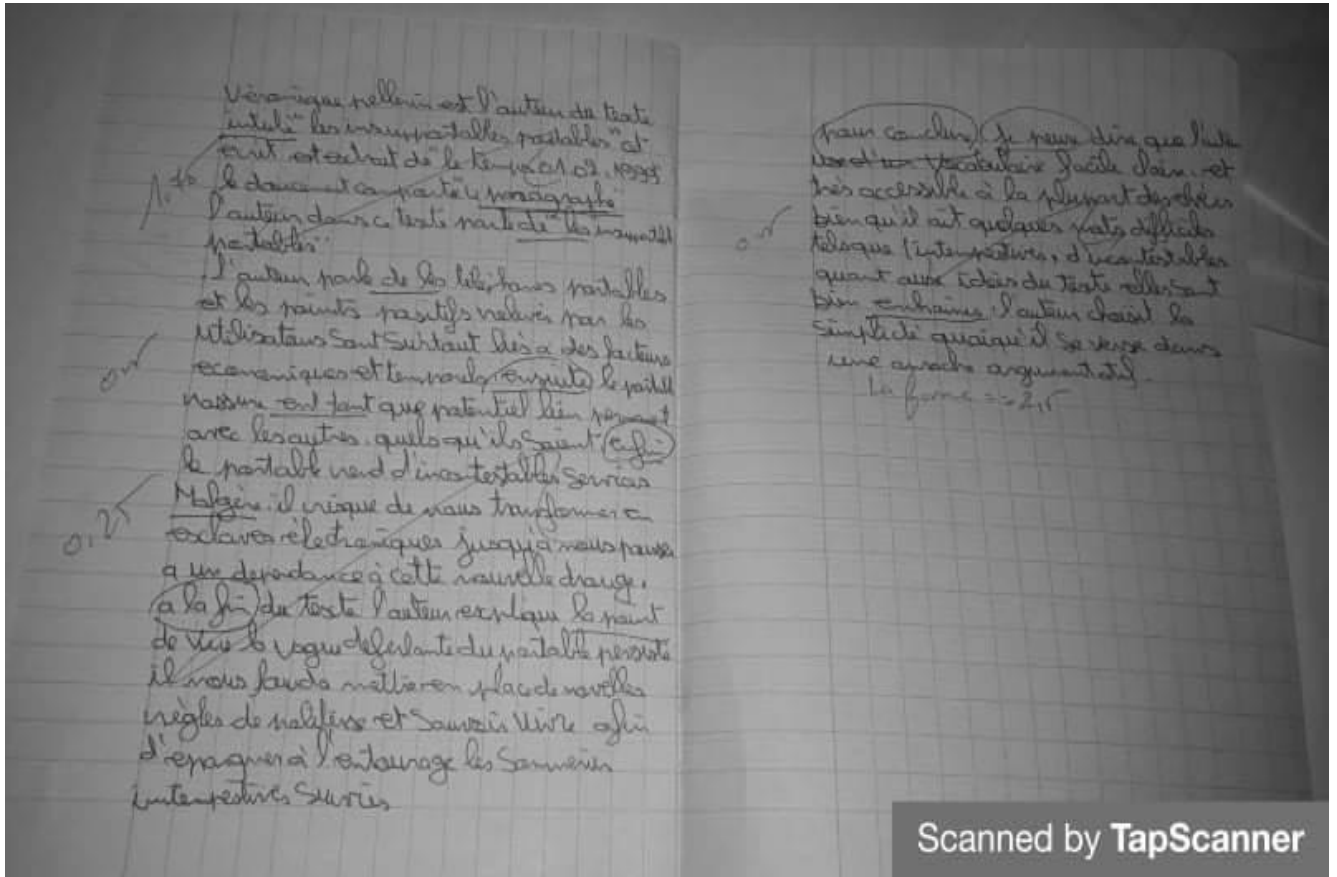 Véronique pellerin est l'auteur du texte
intulé "les insupportables portables" et
écrit est extrait de "le temps 01.02.1999
le document comporte 4 paragraphe
l'auteur dans ce texte parle de "les
portables".
l'auteur parle de les téléphones portables
et les points positifs relevés par les
utilisateurs sont surtout liés a des facteurs
economiques et temporels, ensuite le portable
rassure ent tant que potentiel lien permanent
avec les autres. quels qu'ils soient enfin
le portable rend d'incontestables services
Malgère. il risque de nous transformer en
esclaves électroniques jusqu'à nous pousser
a une dependance à cette nouvelle drogue.
a la fin du texte l'auteur explique le point
de vue la vague déferlante du portable persiste
il nous faudra mettre en place de novelles
règles de politesse et savoir vivre afin
d'epargner à l'entourage les sonneries
intempestives suvies
pour conclure Je peux dire que l'auteur
use d'un vocabulaire facile clair et
très accessible à la plupart des
bien qu'il ait quelques mots difficiles
tels que l'intempestives, d'incontestables
quant aux idées du texte elles sont
bien enhainés. l'auteur choisit la
simplicité quoiqu'il se verse dans
une aproche argumentatif.
0,25
La forme => 2,5